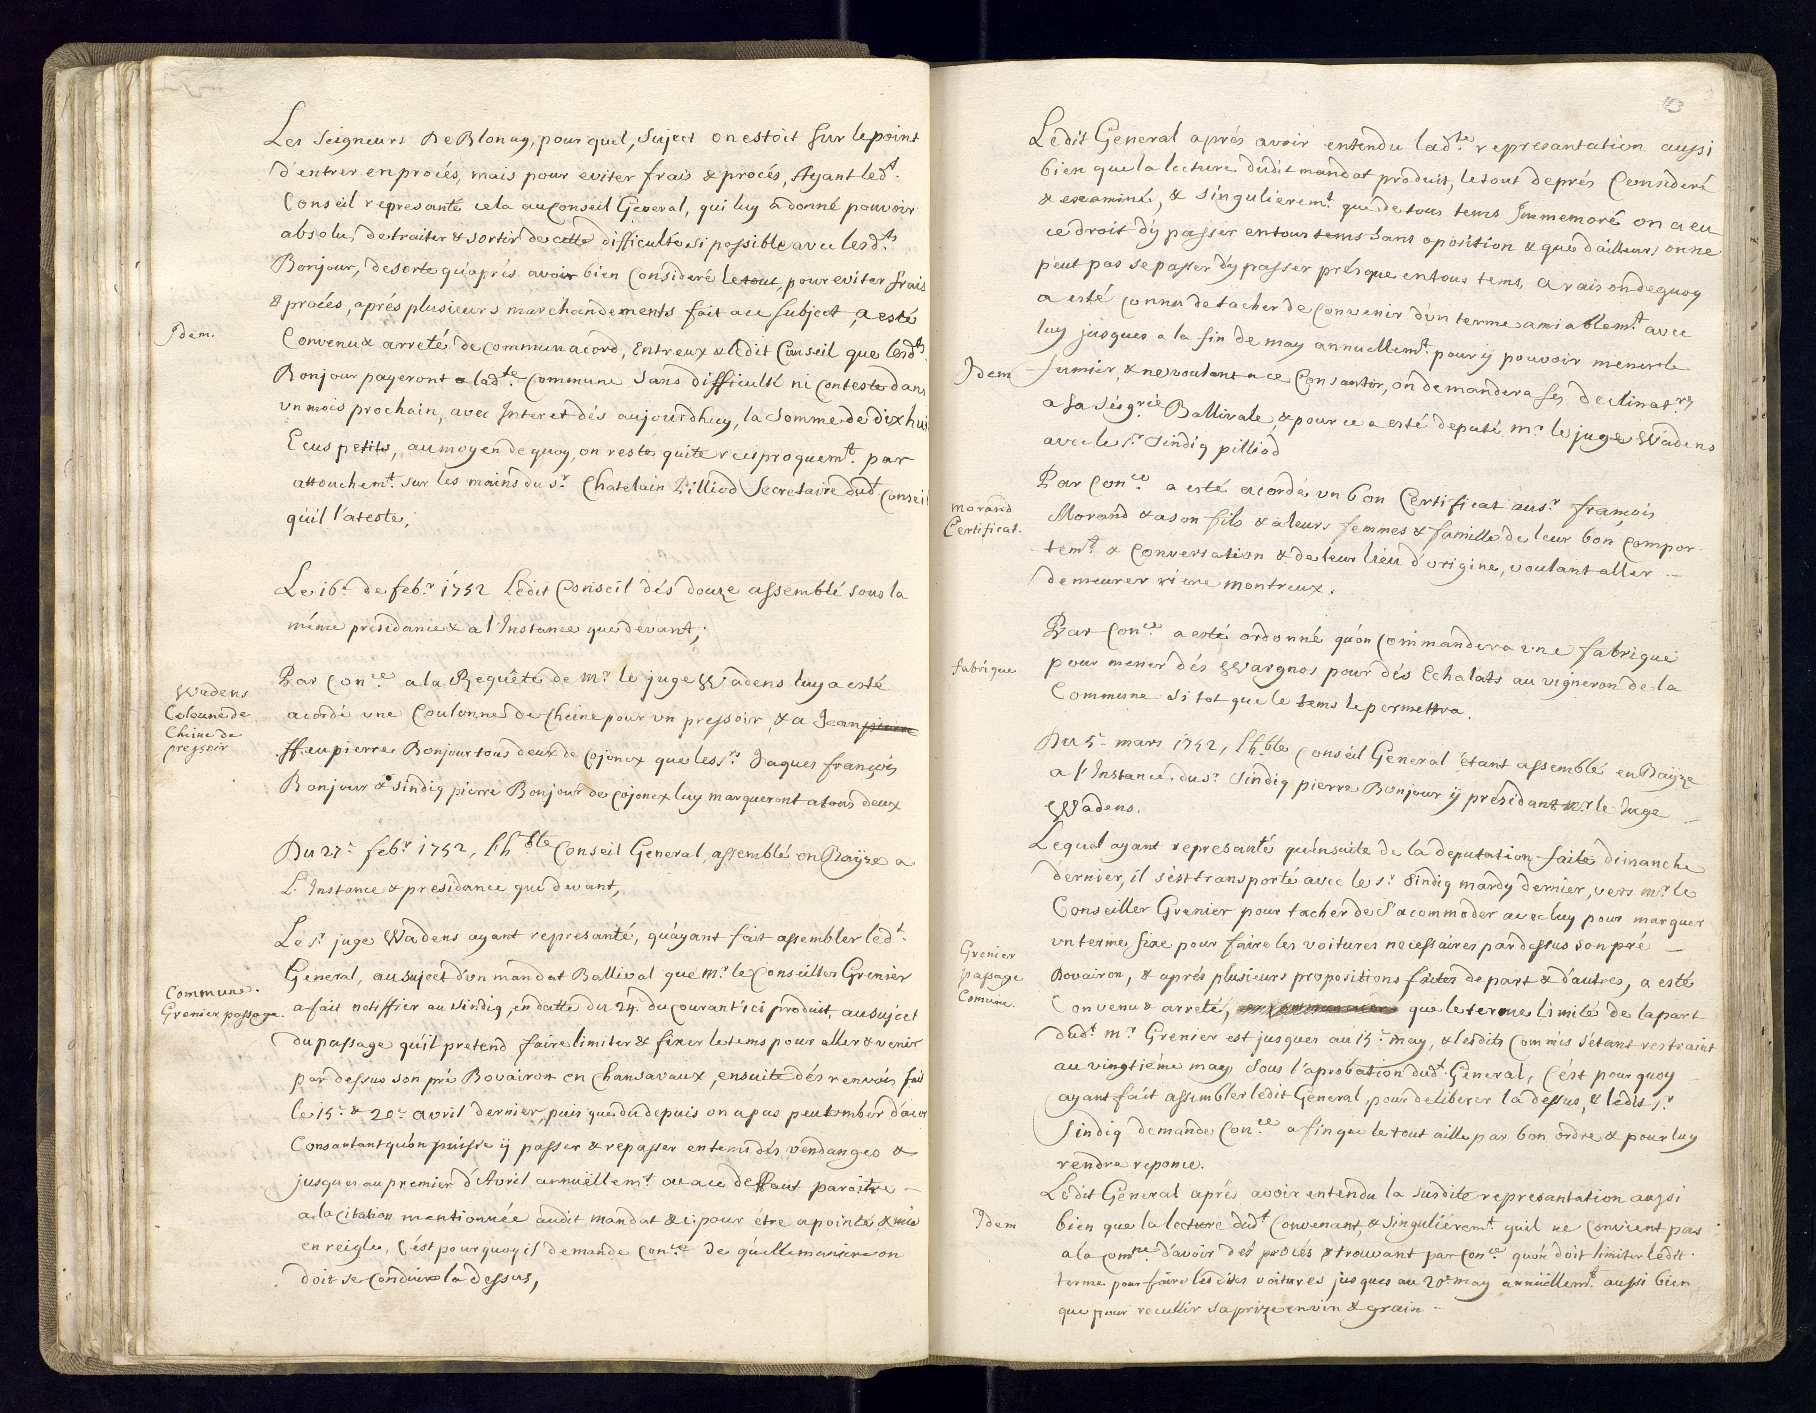 Les Seigneurs De Blonay, pour quel, Suject on estoit sur le point
d'entrer en procés, mais pour eviter frais & procés, Ayant led.t
Conseil representé cela au Conseil General, qui luy a donné pouvoir
absolu, de traiter & sortir de cette difficulté si possible avec lesd.ts
Bonjour, desorte qu'aprés avoir bien consideré le tout, pour eviter frais
& procés, aprés plusieurs marchandements fait a ce subject, a esté
Idem.
Convenu & arreté de commun acord, Entreux & ledit Conseil que lesd.ts
Bonjour payeront a lad.te Commune sans difficulté ni conteste dans
un mois prochain, avec Interet dés aujourdhuy, la Somme de dix huit
Ecus petits, au moyen de quoy, on reste quite reciproquem.t par
attouchem.t sur les mains du s.r Chatelain Pilliod Secretaire dud.t Conseil
qu'il l'ateste;
Le 16.e de feb.r 1752 Ledit Conseil dés douze assemblé sous la
méme présidance & a l'Instance que devant;
Wadens
Colonne de
Cheine de
pressoir
Par Con.ce a la Requête de m.r le juge Wadens luy a esté
acordé une Coulonne de Cheine pour un pressoir, & a Jean pierre
ffeu pierre Bonjour tous deux de Cojonex que les s.rs Jaques françois
Bonjour & sindiq pierre Bonjour de Cojonex luy marqueront a tous deux
Du 27.e feb.r 1752, l'h.ble Conseil General, assemblé en Raÿze a
L'Instance & presidance que devant,
Le s.r juge Wadens ayant representé, qu'ayant fait assembler led.t
General, au suject d'un mandat Ballival que m.r le Conseiller Grenier
Commune.
Grenier passage.
a fait notiffier au sindiq, en datte du 24. du courant ici produit, au sujet
du passage qu'il pretend faire limiter & fixer le tems pour aller & venir
par dessus son pré Bovairon en Chansavaux, ensuite dés renvois fait
le 15.e & 20.e avril dernier, puis que du depuis on a pas peu tomber d'acor
Consantant qu'on puisse ÿ passer & repasser en tems dés vendanges &
jusques au premier d'Avril annuëllem.t ou a ce deffaut paroitre
a la Citation mentionnée audit mandat &c: pour étre apointé & mis
en reigle, C'est pourquoy il demande con.ce de quelle maniere on
doit se Conduire la dessus,
113
Ledit General aprés avoir entendu lad.te represantation aussi
bien que la lecture dudit mandat produit, le tout deprés Consideré
& examiné, & singulierem.t que de tous tems Immemoré on a eu
ce droit d'y passer en tous tems sans oposition & que d'ailleurs on ne
peut pas se passer d'y passer présque en tous tems, a raison dequoy
a esté connu de tacher de Convenir d'un terme amiablem.t avec
luy jusques a la fin de may annuellem.t pour ÿ pouvoir mener le
Idem
fumier, & ne voulant a ce Consantir, on demandera ses declinat.res
a sa Seig.rie Ballivale, & pour ce a esté deputé m.r le juge Wadens
avec le s.r Sindiq pilliod
morand
Certificat.
Par Con.ce a esté acordé un bon Certificat au s.r françois
Morand & a son fils & a leurs femmes & famille de leur bon compor-
tem.t & Conversation & de leur lieu d'origine, voulant aller
demeurer riere montreux.
fabrique
Par Con.ce a esté ordonné qu'on Commandera une fabrique
pour mener dés Wargnos pour dés Echalats au vigneron de la
Commune si tot que le tems le permettra.
Du 5.e mars 1752, l'h.ble Conseil General étant assemblé en Raÿze
a l'Instance du s.r Sindiq pierre Bonjour ÿ présidant m.r le Juge
Wadens.
Lequel ayant representé qu'ensuite de la deputation faite dimanche
dernier, il s'est transporté avec le s.r Sindiq mardy dernier, vers m.r le
Conseiller Grenier pour tacher de S'acommoder avec luy pour marquer
un terme fixe pour faire les voitures necessaires par dessus son pré
Grenier
passage
Comune.
Bovairon, & aprés plusieurs propositions faites de part & d'autres, a esté
Convenu & arreté, que le terme limité de la part
dud.t m.r Grenier est jusques au 15.e may, & lesdits Commis s'étant restraint
au vingtiéme may sous l'aprobation dud.t General, C'ést pourquoy
ayant fait assembler ledit General, pour deliberer la dessus, & ledit s.r
Sindiq demande Con.ce a fin que le tout aille par bon ordre & pour luy
rendre reponce.
Ledit General aprés avoir entendu la susdite represantation aussi
Idem
bien que la lecture dud.t Convenant, & singulièrem.t qu'il ne convient pas
a la com.ne d'avoir dés procés & trouvant par con.ce qu'on doit limiter ledit
terme pour faire lesdites voitures jusques au 20.e may annüellem.t aussi bien
que pour recullir sa prize en vin & grain